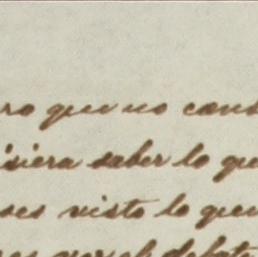 ro que no cons
isiera saber lo que
ses visto lo que